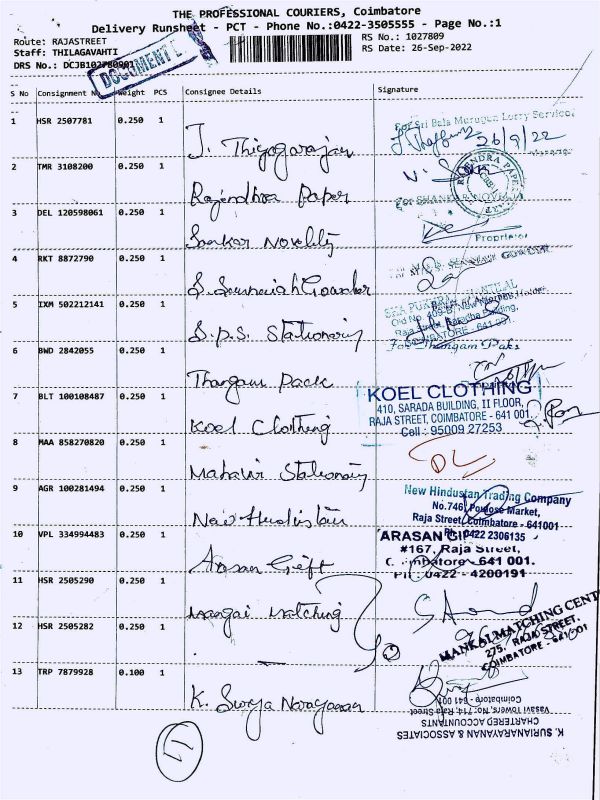 THE PROFESSIONAL COURIERS, Coimbatore
Delivery Runsheet - PCT - Phone No.:0422-3505555 - Page No.:1
Route: RAJASTREET
RS No.: 1027809
Staff: THILAGAVAHTI
RS Date: 26-Sep-2022
DRS No.: DCJB102780901
DOCUMENT
S No Consignment Weight PCS Consignee Details Signature
1 HSR 2507781 0.250 1 J. Thiyagarajan
For Sri Bala Murugan Lorry Service,
26/9/22
Manager
2 TMR 3108200 0.250 1 Rajendhra Paper
RAJENDRA PAPER
3 DEL 120598061 0.250 1 Sankar Novelty
For SHANKAR NOVELTY
Proprietor
4 RKT 8872790 0.250 1 S. Sounraiah Gowder
5 IXM 502212141 0.250 1 S.P.S. Stationary
COIMBATORE - 641 001.
6 BWD 2842055 0.250 1 Thangam Pack
For Thangam Paks
7 BLT 100108487 0.250 1 Koel Clothing
KOEL CLOTHING
410, SARADA BUILDING, II FLOOR,
RAJA STREET, COIMBATORE - 641 001.
Cell : 95009 27253
8 MAA 858270820 0.250 1 Mahavir Stationary
9 AGR 100281494 0.250 1 New Hindustan
New Hindustan Trading Company
No.746, Market,
Raja Street, Coimbatore - 641001
Ph: 0422 2306135
10 VPL 334994483 0.250 1 Arasan Gift
ARASAN GIFT
#167, Raja Street,
Coimbatore - 641 001.
Ph : 0422 - 4200191
11 HSR 2505290 0.250 1 Mangai Matching
12 HSR 2505282 0.250 1
2
MANGAI MATCHING CENT
275, RAJA STREET,
COIMBATORE - 641 001
13 TRP 7879928 0.100 1 K. Surya Narayanan
K. SURIANARAYANAN & ASSOCIATES
CHARTERED ACCOUNTANTS
Vasavi Towers, No: 714, Raja Street
Coimbatore - 641 001
11